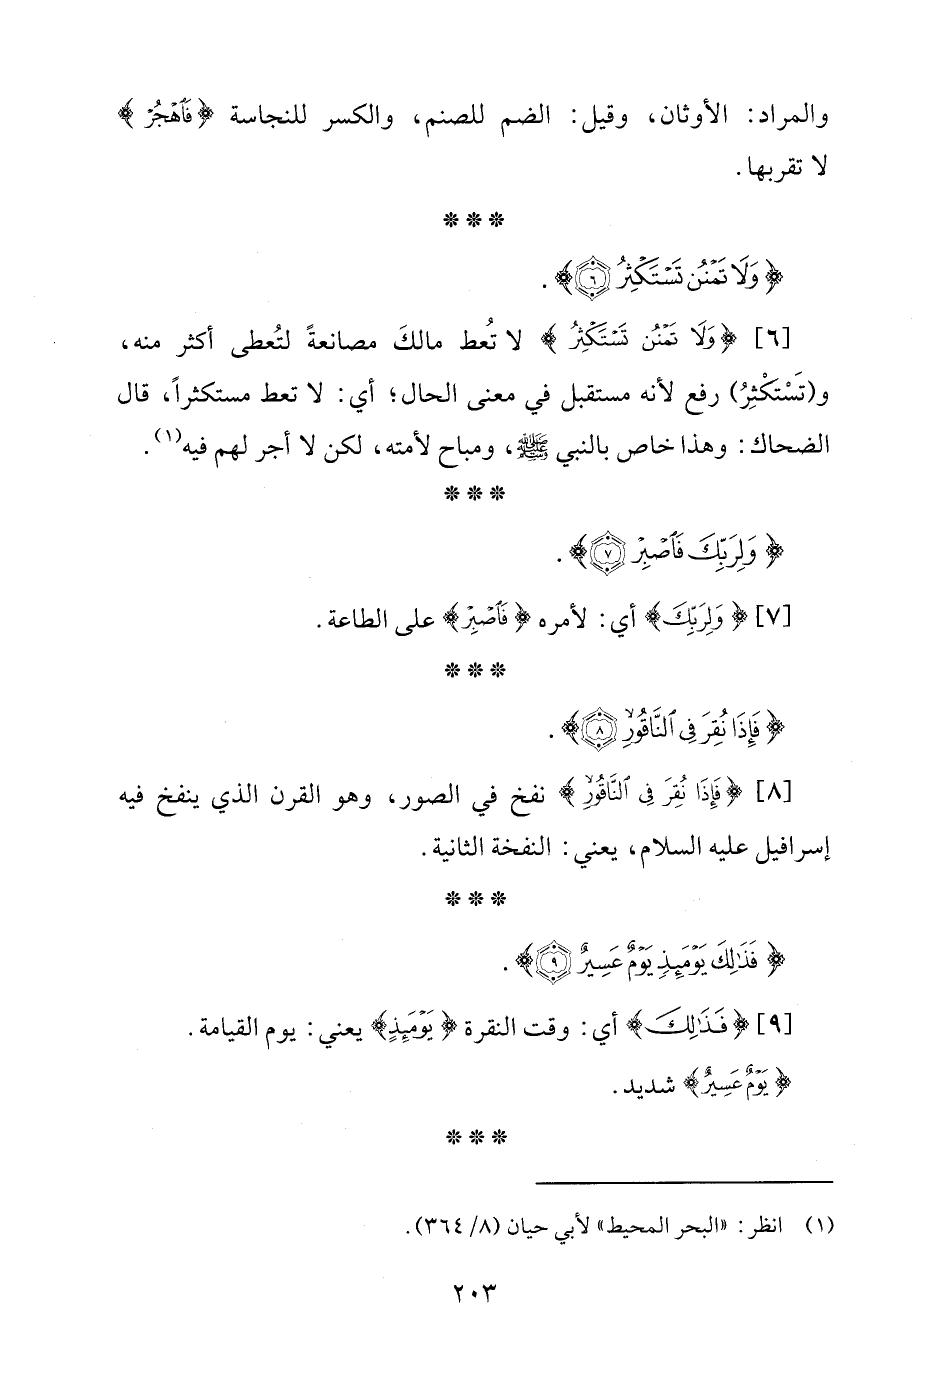 والمراد: الأوثان، وقيل: الضم للصنم، والكسر للنجاسة ﴿فَٱهْجُرْ﴾
لا تقربها.
* * *
﴿وَلَا تَمْنُن تَسْتَكْثِرُ ٦﴾.
[٦] ﴿وَلَا تَمْنُن تَسْتَكْثِرُ﴾ لا تُعط مالكَ مصانعةً لتُعطى أكثر منه،
و(تَسْتَكْثِرُ) رفع لأنه مستقبل في معنى الحال؛ أي: لا تعط مستكثراً، قال
الضحاك: وهذا خاص بالنبي ﷺ، ومباح لأمته، لكن لا أجر لهم فيه(١).
* * *
﴿وَلِرَبِّكَ فَٱصْبِرْ ٧﴾.
[٧] ﴿وَلِرَبِّكَ﴾ أي: لأمره ﴿فَٱصْبِرْ﴾ على الطاعة.
* * *
﴿فَإِذَا نُقِرَ فِى ٱلنَّاقُورِۙ ٨﴾.
[٨] ﴿فَإِذَا نُقِرَ فِى ٱلنَّاقُورِۙ﴾ نفخ في الصور، وهو القرن الذي ينفخ فيه
إسرافيل عليه السلام، يعني: النفخة الثانية.
* * *
﴿فَذَٰلِكَ يَوْمَئِذٍ يَوْمٌ عَسِيرٌ ٩﴾.
[٩] ﴿فَذَٰلِكَ﴾ أي: وقت النقرة ﴿يَوْمَئِذٍ﴾ يعني: يوم القيامة.
﴿يَوْمٌ عَسِيرٌ﴾ شديد.
* * *
(١) انظر: «البحر المحيط» لأبي حيان (٨/ ٣٦٤).
٢٠٣